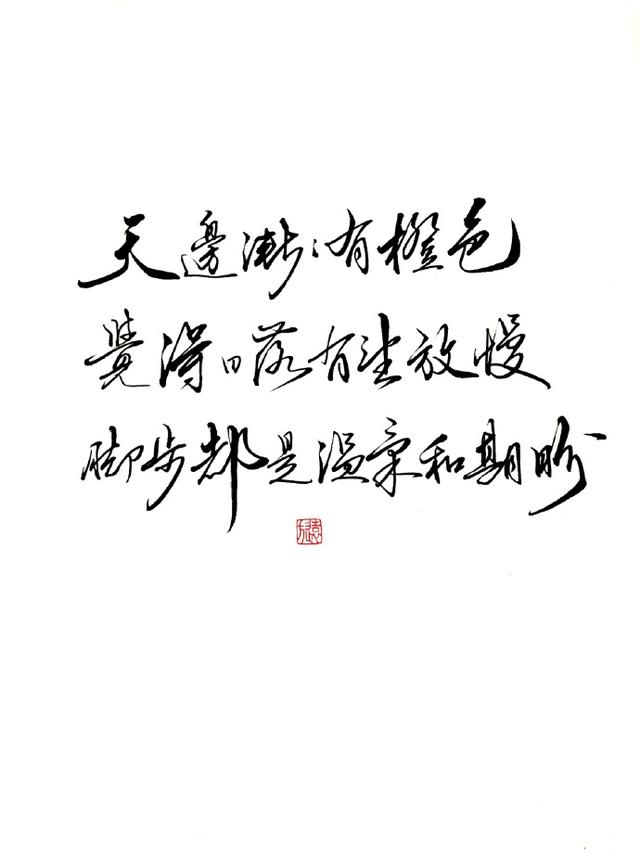 天邊漸〻有橙色
覺得日落有些放慢
脚步都是温柔和期盼